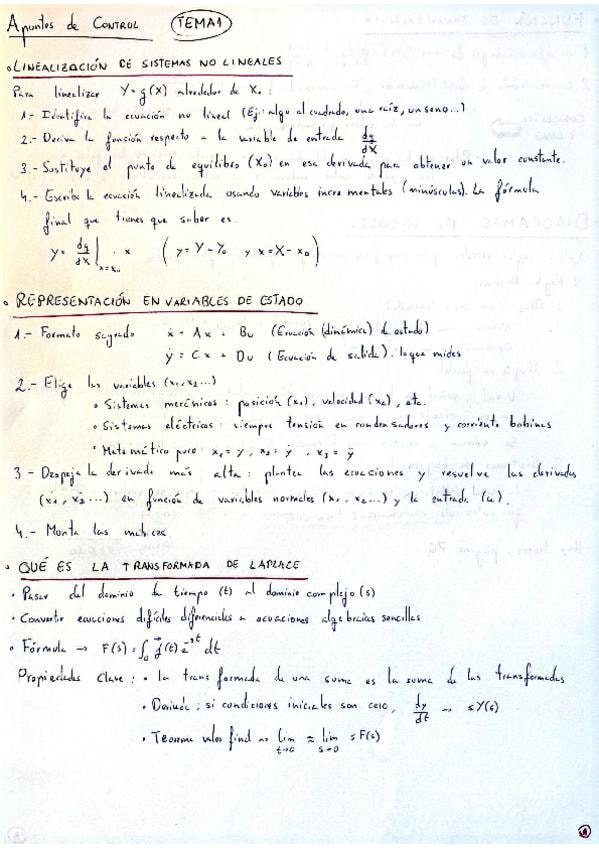 Apuntes de Control TEMA 1
• LINEALIZACIÓN DE SISTEMAS NO LINEALES
Para linealizar Y = g(X) alrededor de X₀ :
1.- Identifica la ecuación no lineal (Ej: algo al cuadrado, una raíz, un seno...)
2.- Deriva la función respecto a la variable de entrada dg/dX
3.- Sustituye el punto de equilibrio (X₀) en esa derivada para obtener un valor constante.
4.- Escribe la ecuación linealizada usando variables incrementales (minúsculas). La fórmula
final que tienes que saber es.
y = dg/dX |x=x₀ · x ( y = Y - Y₀ y x = X - x₀ )
• REPRESENTACIÓN EN VARIABLES DE ESTADO
1.- Formato sagrado ẋ = Ax + Bu (Ecuación (dinámica) de estado)
ẏ = Cx + Du (Ecuación de salida). lo que mides
2.- Elige las variables (x₁, x₂ ...)
• Sistemas mecánicos : posición (x₁), velocidad (x₂), etc.
• Sistemas eléctricos : siempre tensión en condensadores y corriente bobinas
• Matemático puro : x₁ = y , x₂ = ẏ , x₃ = ÿ
3 - Despeja la derivada más alta : plantea las ecuaciones y resuelve las derivadas
(ẋ₁, ẋ₂ ...) en función de variables normales (x₁, x₂ ...) y la entrada (u).
4.- Monta las matrices
• QUÉ ES LA TRANSFORMADA DE LAPLACE
• Pasar del dominio de tiempo (t) al dominio complejo (s)
• Convertir ecuaciones difíciles diferenciales a ecuaciones algebraicas sencillas
• Fórmula → F(s) = ∫₀^∞ f(t) e^-st dt
Propiedades Clave : • la transformada de una suma es la suma de las transformadas
• Derivada : si condiciones iniciales son cero, dy/dt → sY(s)
• Teorema valor final → lim t→0 ≈ lim s→0 sF(s)